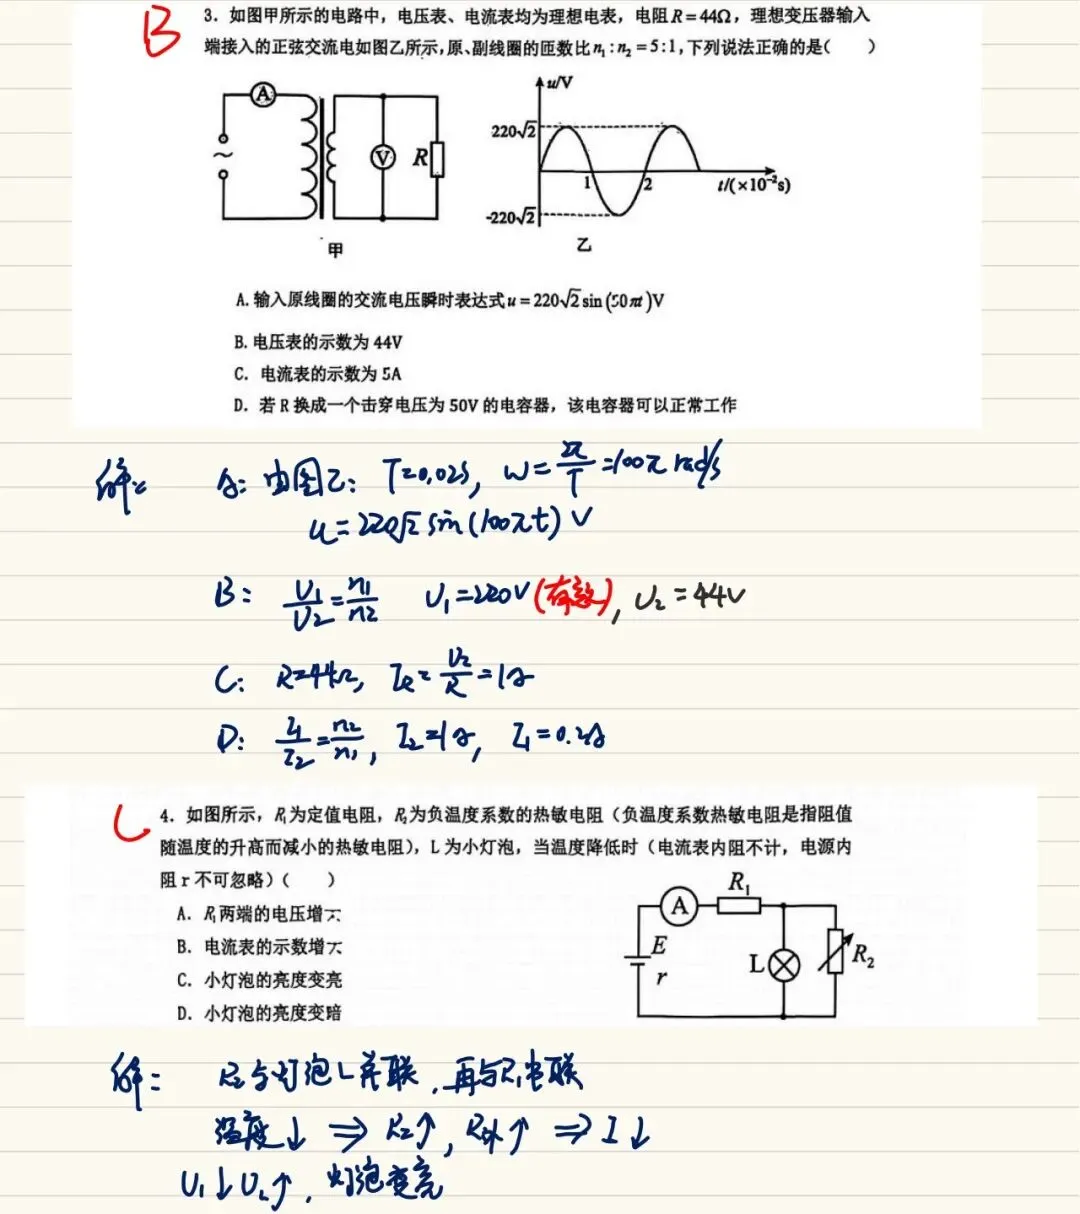 B
3. 如图甲所示的电路中，电压表、电流表均为理想电表，电阻R=44Ω，理想变压器输入
端接入的正弦交流电如图乙所示，原、副线圈的匝数比n₁:n₂=5:1，下列说法正确的是(　　)
A
V
R
甲
u/V
220√2
1
2
t/(×10⁻²s)
-220√2
乙
A. 输入原线圈的交流电压瞬时表达式u=220√2sin(50πt)V
B. 电压表的示数为44V
C. 电流表的示数为5A
D. 若R换成一个击穿电压为50V的电容器，该电容器可以正常工作
解：
A: 由图乙: T=0.02s, ω=2π/T=100π rad/s
u=220√2 sin(100πt) V
B: U₁/U₂=n₁/n₂ U₁=220V(有效), U₂=44V
C: R=44Ω, I_R=U₂/R=1A
D: I₁/I₂=n₂/n₁, I₂=1A, I₁=0.2A
C
4. 如图所示，R₁为定值电阻，R₂为负温度系数的热敏电阻（负温度系数热敏电阻是指阻值
随温度的升高而减小的热敏电阻），L为小灯泡，当温度降低时（电流表内阻不计，电源内
阻r不可忽略）(　　)
A. R₁两端的电压增大
B. 电流表的示数增大
C. 小灯泡的亮度变亮
D. 小灯泡的亮度变暗
A
R₁
E
r
L
R₂
解：
R₂与灯泡L并联，再与R₁串联
温度↓ ⇒ R₂↑, R外↑ ⇒ I↓
U₁↓U₂↑, 灯泡变亮